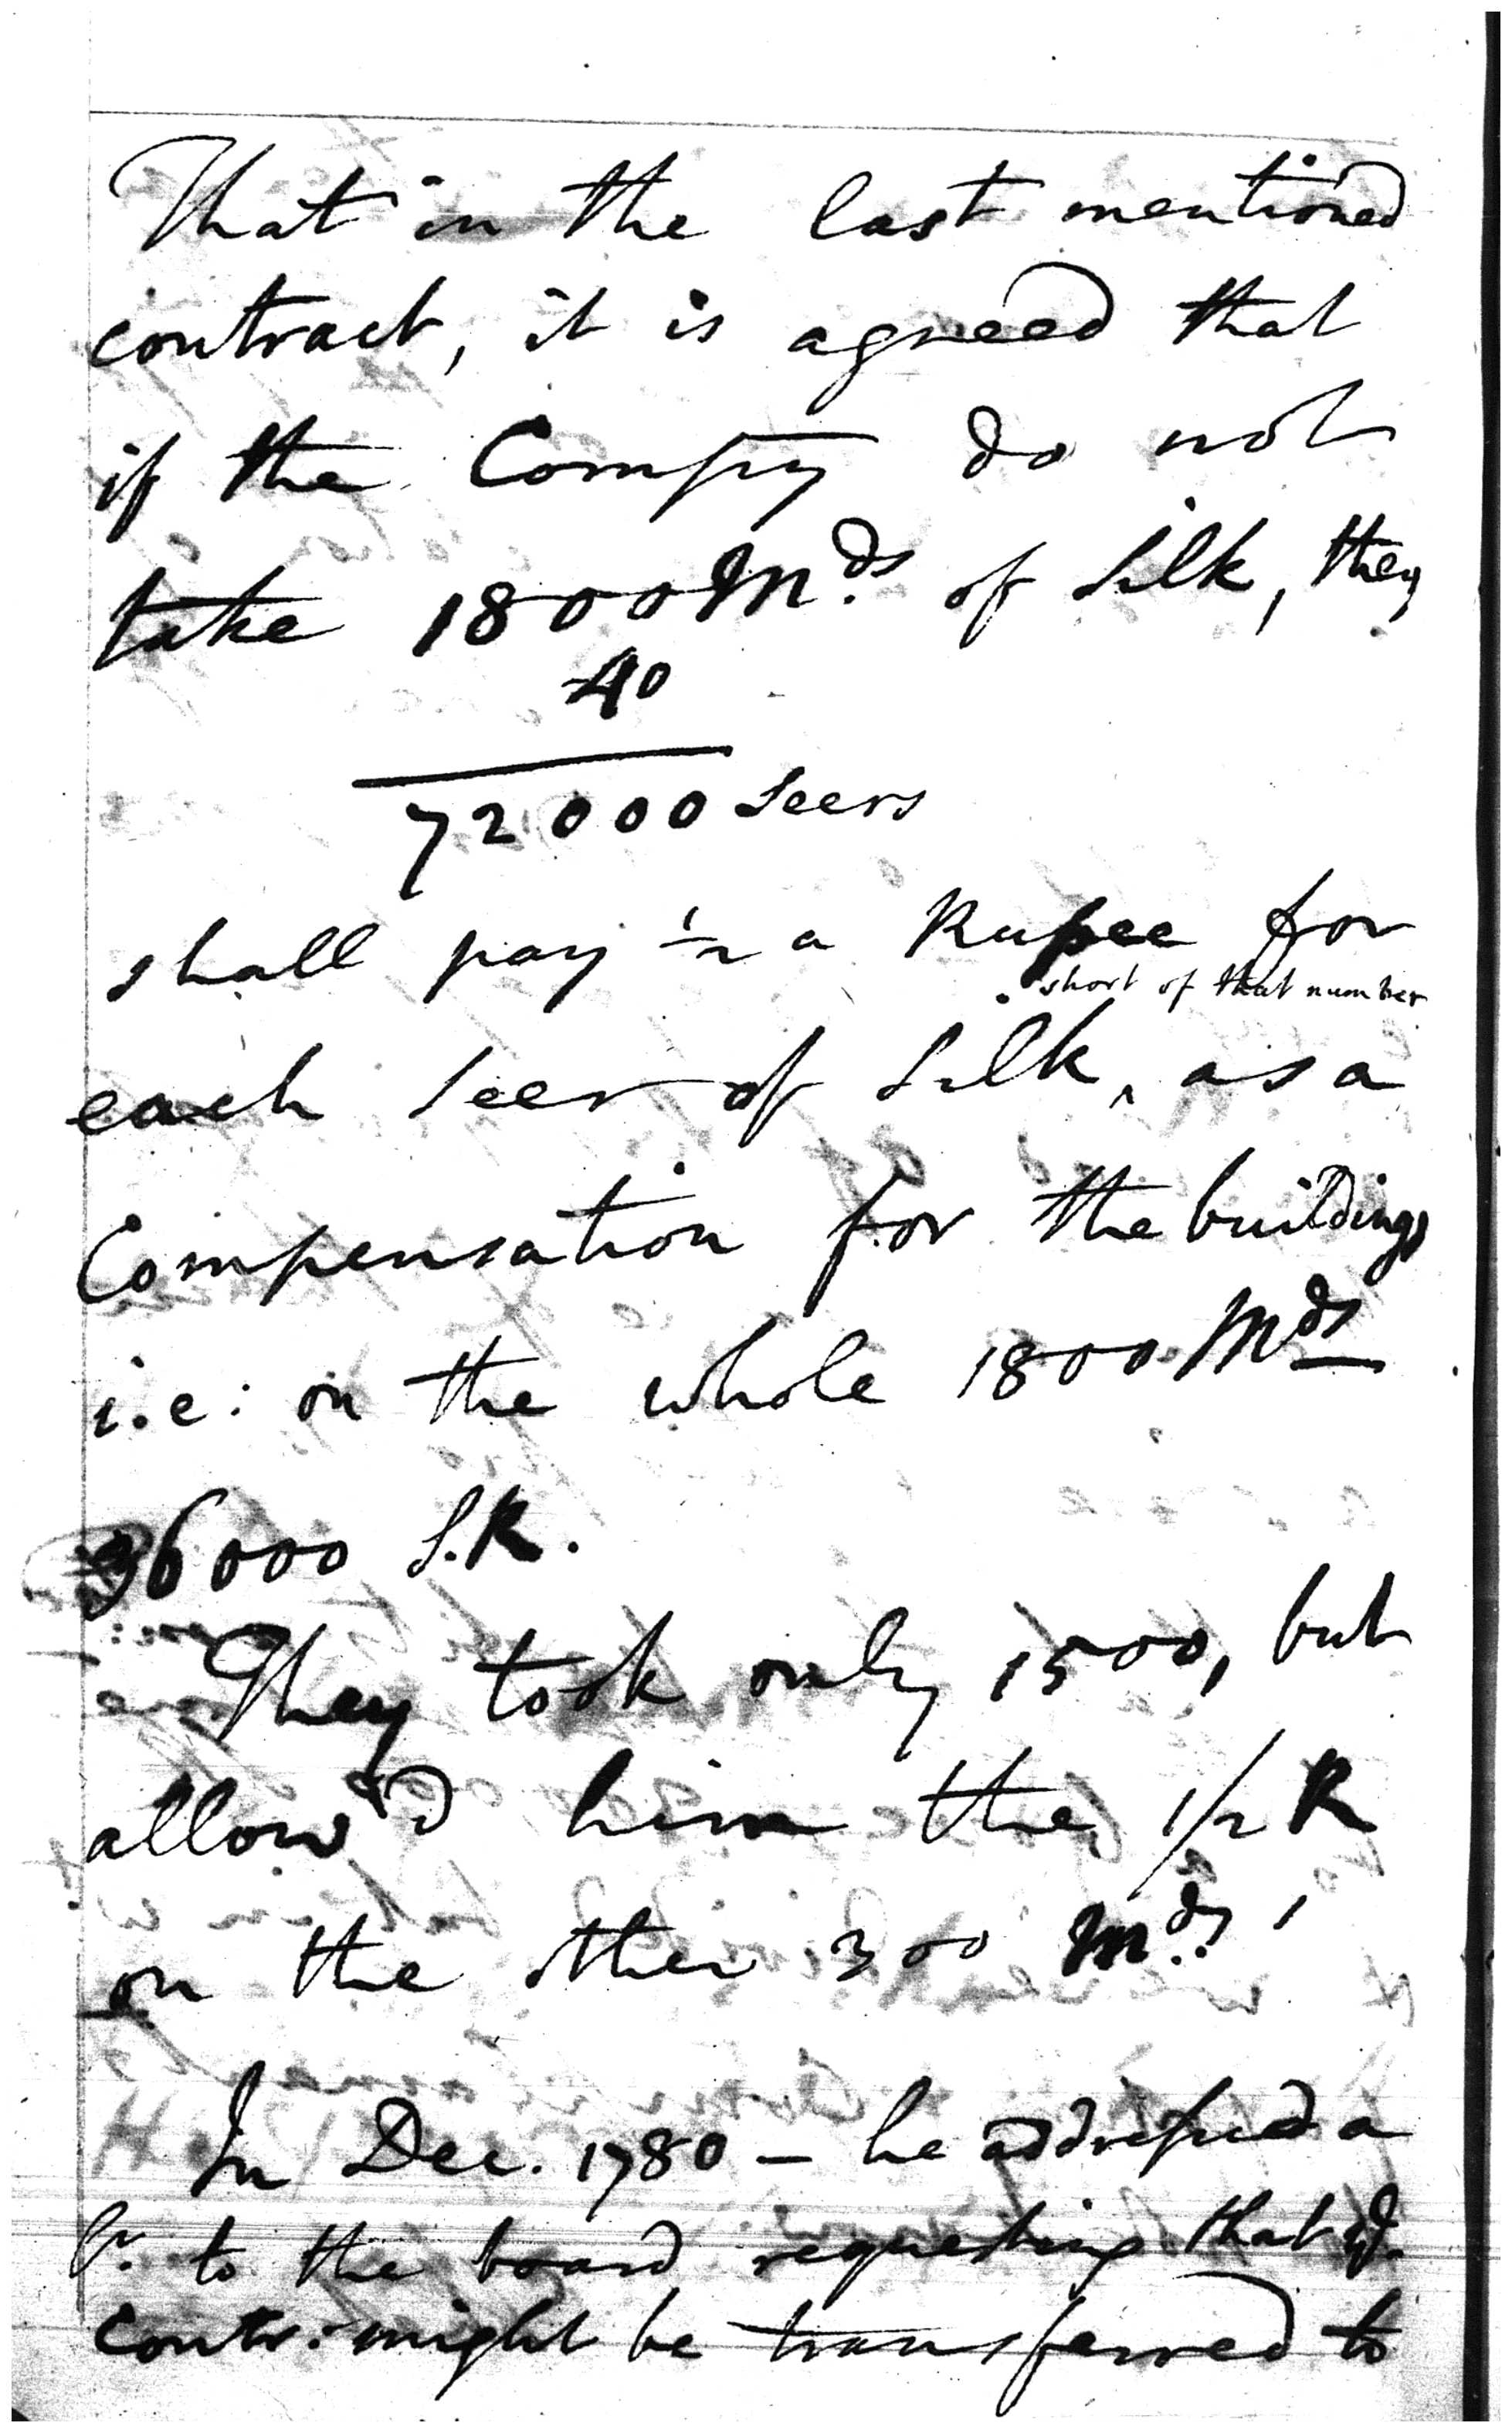 That in the last mentioned
contract, it is agreed that
if the Compy do not
take 1800 Mds. of Silk, they
40
72000 Seers
shall pay ½ a Rupee for
short of that number
each Seer of Silk ‸ as a
Compensation for the buildings
i.e: on the whole 1800 Mds
36000 S.R.
They took only 1500, but
allow'd him the 1/2 R
on the other 300 Mds.
In Dec. 1780 – he addressed a
to the board requesting that
contr: might be transferred to